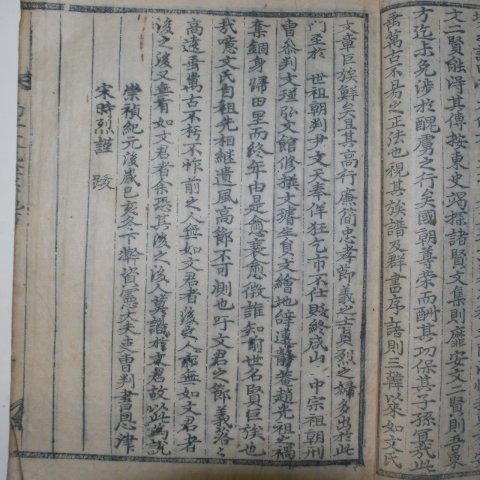 文二賢能得其傳按東史竭探諸賢文集則靡文一賢則吾東
方迄未免涉於醜虜之行矣國朝尊崇而酬其功保其子孫宜哉此
萬古不易之正法也視其族譜及群書序語則三韓以來如文氏
文章巨族鮮矣且其高行廉簡忠孝節義之士貞烈之婦多出於此
門至於 世祖朝判尹文天奉佯狂乞市不仕貶終咸山 中宗祖朝刑
曹參判文瑾弘文館修撰文瑭生員文繪地皆遠靜菴趙光祖之禍
棄錮身歸田里而終年由是愈衰愈徵誰知前世名賢巨族也
哉噫文氏自祖先相継遺風高節不可測也吁文君之節義洛々
高遠吾萬古不朽不怍前之人無如文君者後之人亦無如文君者
後之後又無有如文君者余恐其後之後人莫識於文君故以此為說
崇禎紀元後歲己亥冬下澣資憲大夫吏曹判書恩津
宋時烈謹 跋